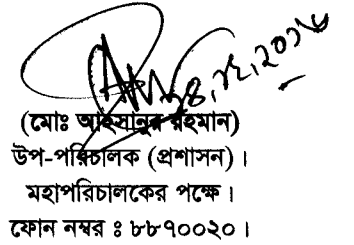 (মোঃ আহসানুর রহমান)
উপ-পরিচালক (প্রশাসন)।
মহাপরিচালকের পক্ষে।
ফোন নম্বর ঃ ৮৮৭০০২০।